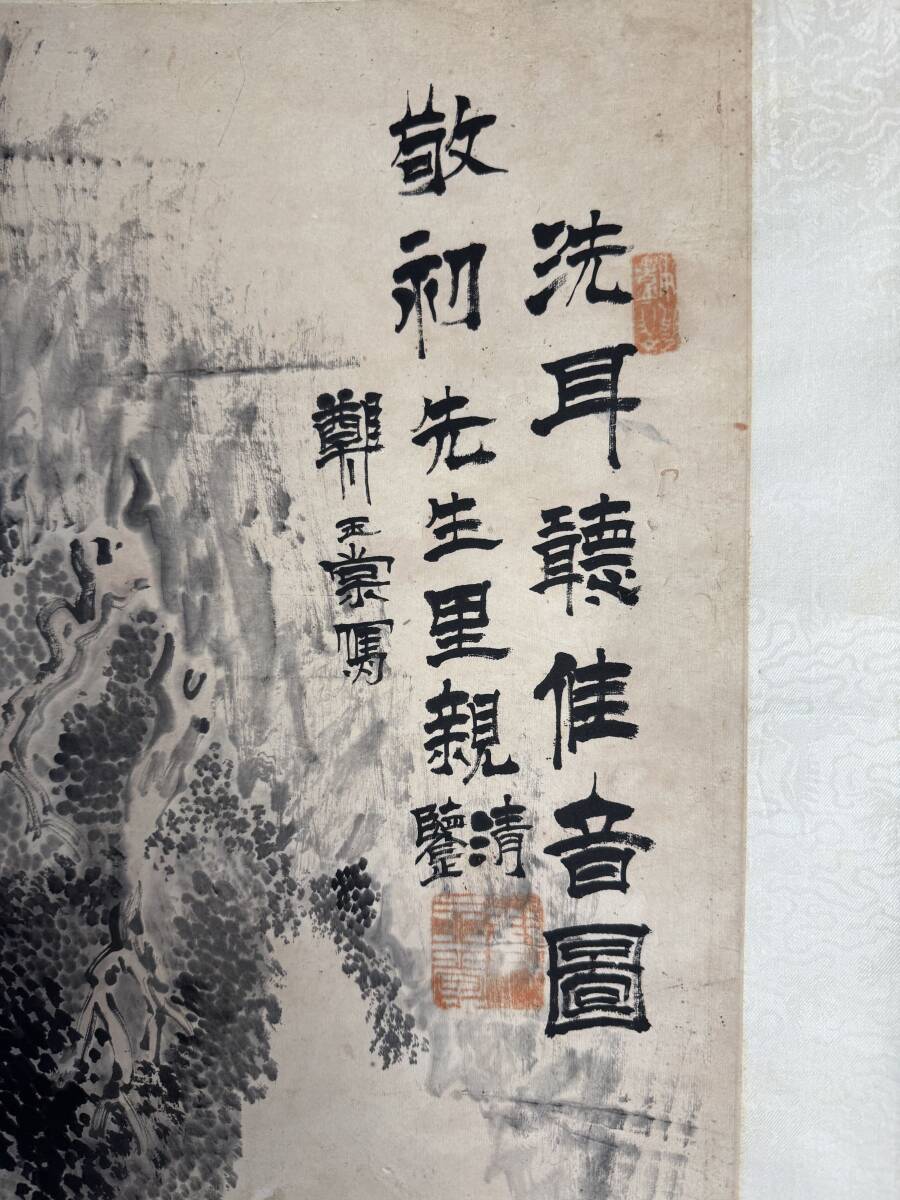 洗耳聽佳音圖
敬初先生里親清鑒
鄭玉棠寫